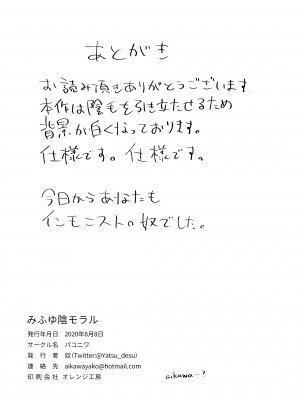 あとがき
お読み頂きありがとうございます
本作は陰毛を引き立たせるため
背景が白くなっております。
仕様です。仕様です。
今日からあなたも
インモニストの奴でした。
みふゆ陰モラル
発行年月日 2020年8月8日
サークル名 パコニワ
発行者 奴(Twitter:@Yatsu_desu)
連絡先 aikawayako@hotmail.com
印刷会社 オレンジ工房
aikawa...?